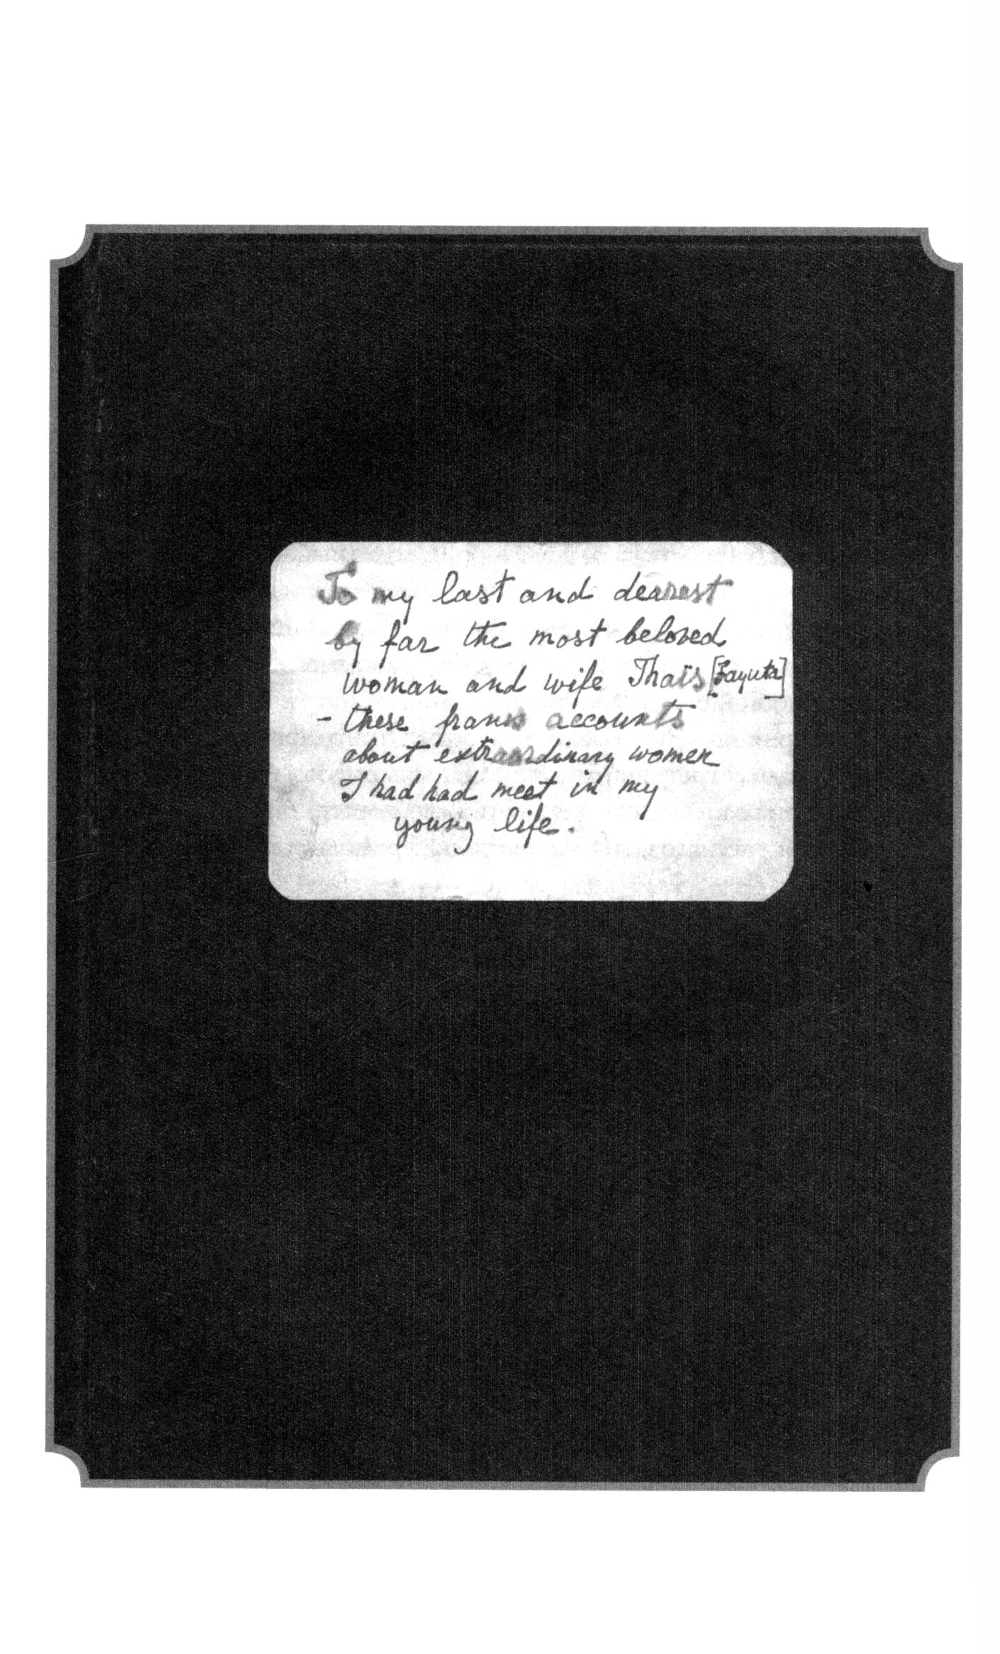 To my last and dearest
by far the most beloved
woman and wife Thaïs [Tayuta]
- these frank accounts
about extraordinary women
I had had meet in my
young life.